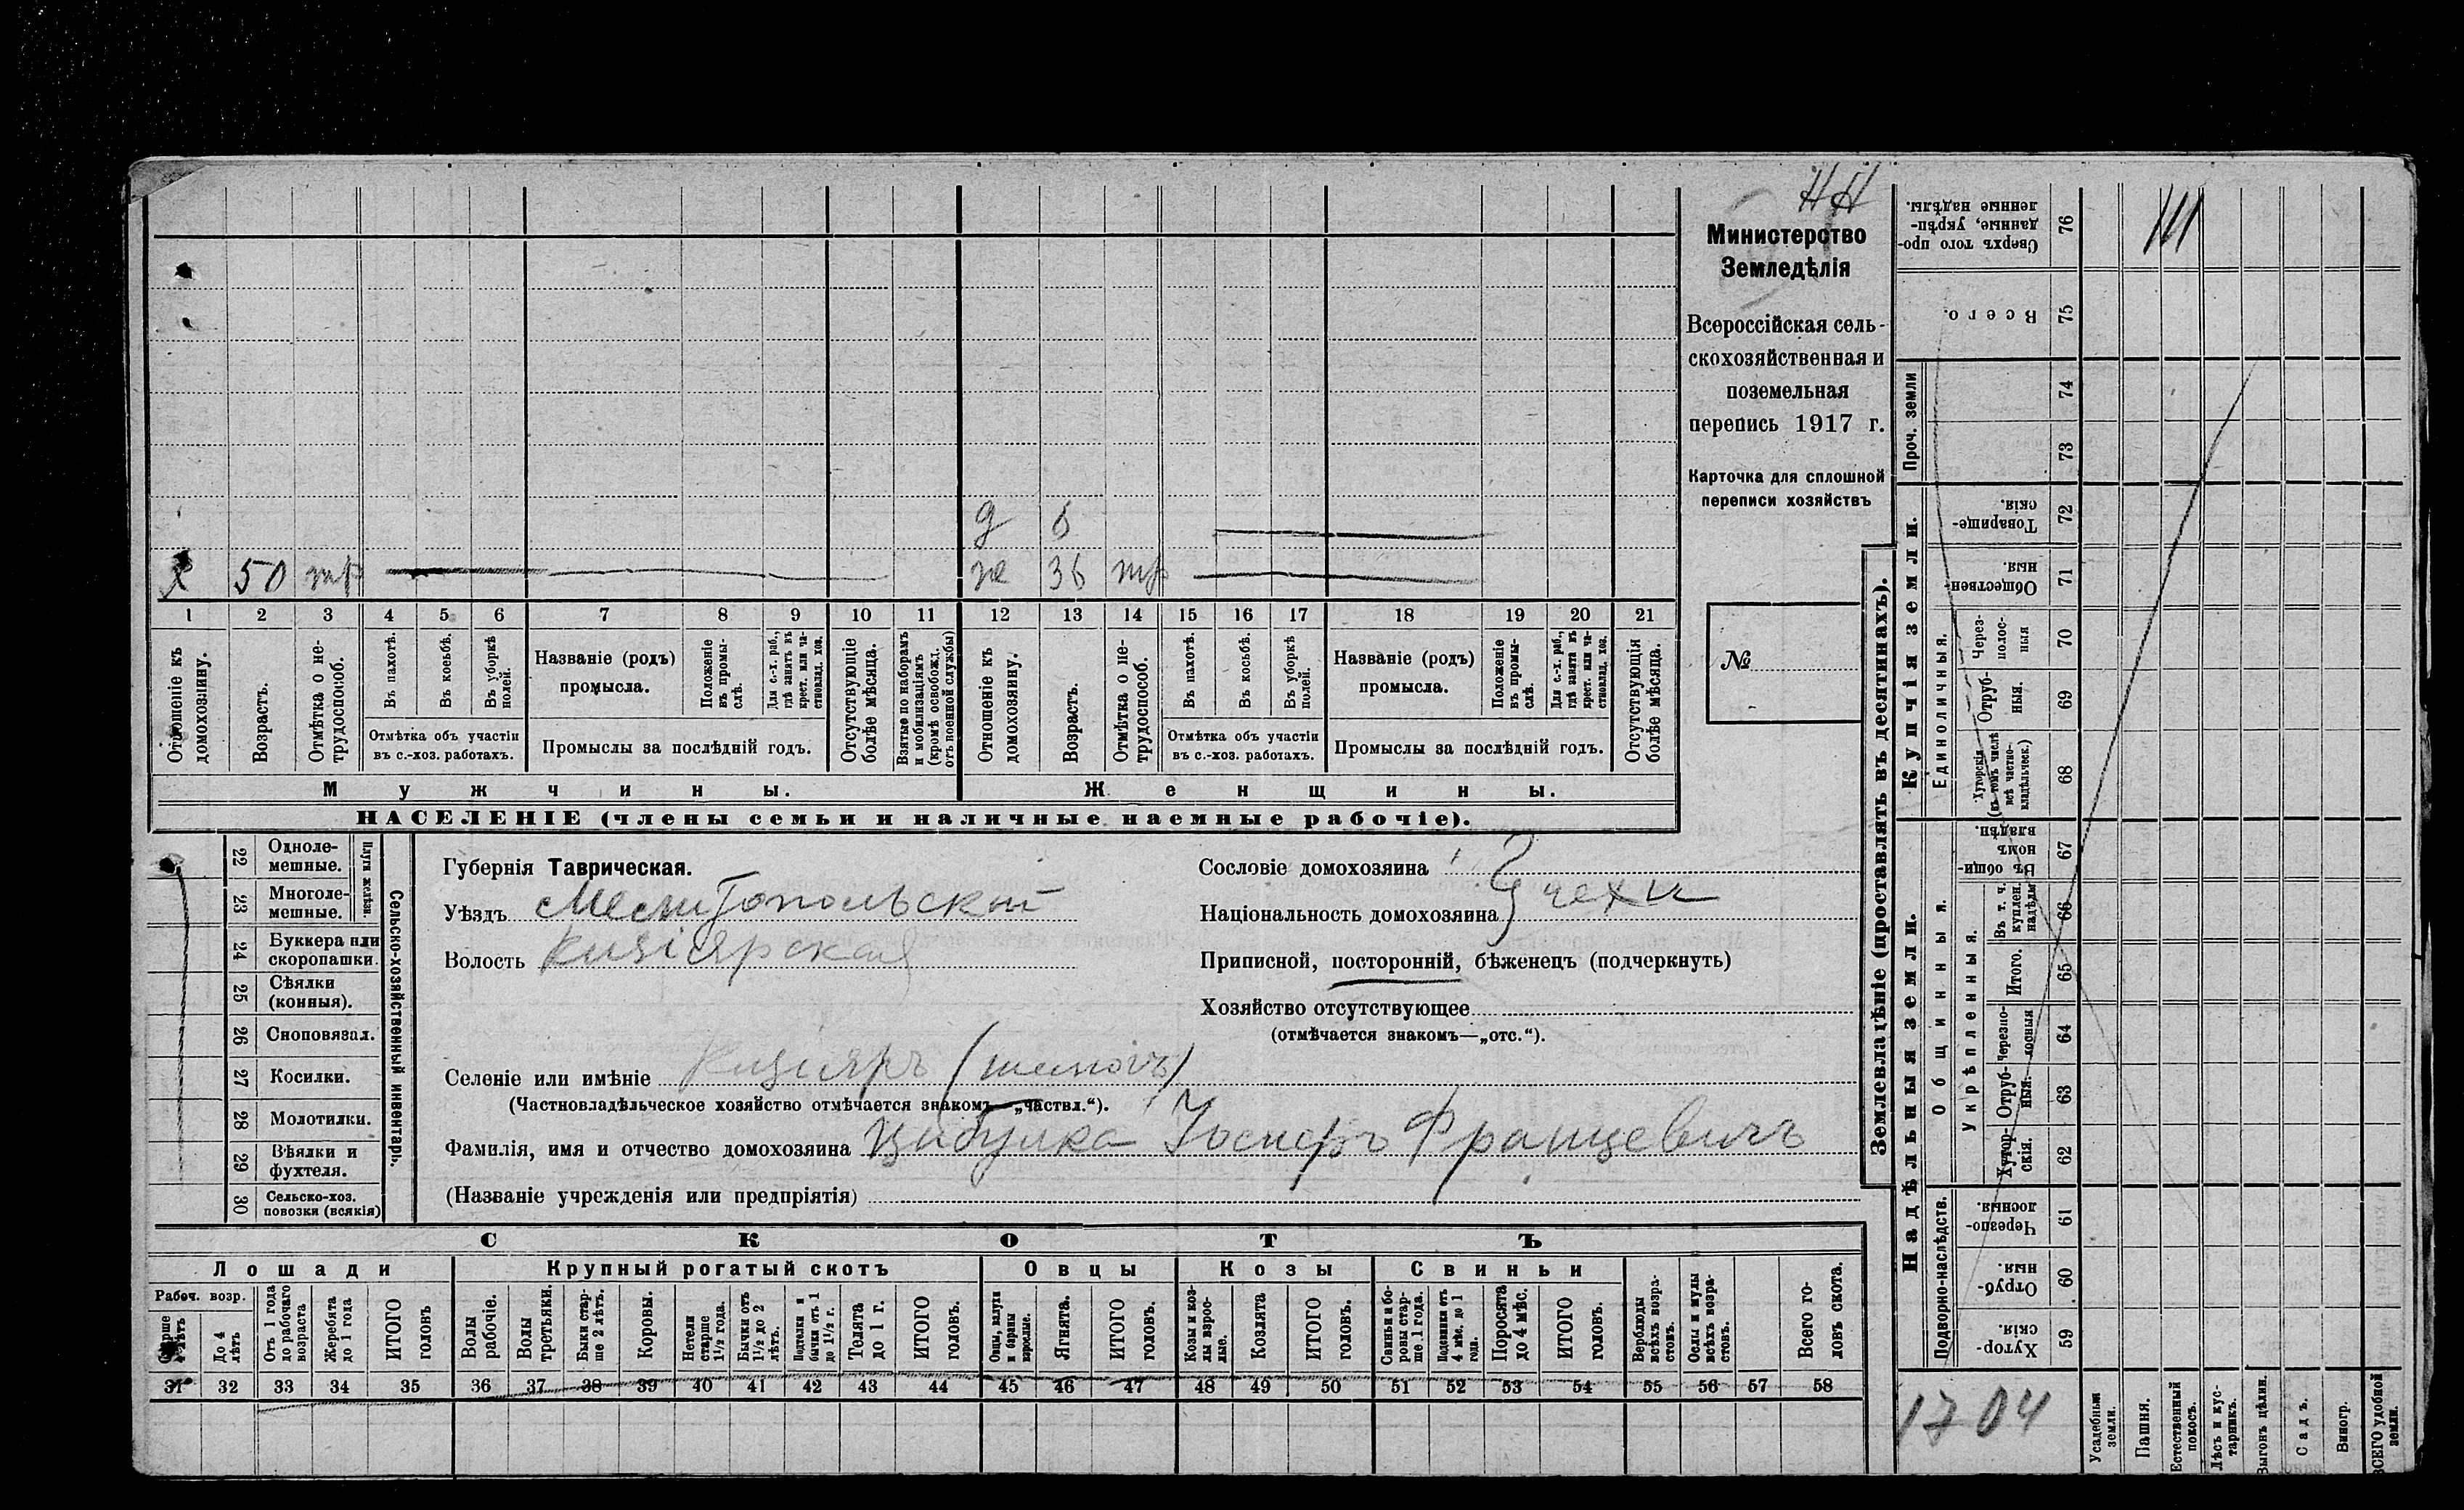 НН
Министерство
Земледѣлія
Всероссійская сель-
скохозяйственная и
поземельная
перепись 1917 г.
Карточка для сплошной
переписи хозяйствъ
№
д 6
х 50 тр
ж 36 тр
1 2 3 4 5 6 7 8 9 10 11 12 13 14 15 16 17 18 19 20 21
Отношеніе къ домохозяину.
Возрастъ.
Отмѣтка о не-трудоспособ.
Въ пахотѣ.
Въ косьбѣ.
Въ уборкѣ полей.
Отмѣтка объ участіи
въ с.-хоз. работахъ.
Названіе (родъ)
промысла.
Положеніе въ промы-слѣ.
Для с.-х. раб., гдѣ занятъ въ крест. или ча-стновлад. хоз.
Промыслы за послѣдній годъ.
Отсутствующіе болѣе мѣсяца.
Взятые по наборамъ и мобилизаціямъ (кромѣ освобожд. отъ военной службы)
Отношеніе къ домохозяину.
Возрастъ.
Отмѣтка о не-трудоспособ.
Въ пахотѣ.
Въ косьбѣ.
Въ уборкѣ полей.
Отмѣтка объ участіи
въ с.-хоз. работахъ.
Названіе (родъ)
промысла.
Положеніе въ промы-слѣ.
Для с.-х. раб., гдѣ занята въ крест. или ча-стновлад. хоз.
Промыслы за послѣдній годъ.
Отсутствующія болѣе мѣсяца.
Мужчины.
Женщины.
НАСЕЛЕНІЕ (члены семьи и наличные наемные рабочіе).
22 Одноле-мешные.
23 Многоле-мешные.
Плуги желѣзн.
24 Буккера или скоропашки.
25 Сѣялки (конныя).
26 Сноповязал.
27 Косилки.
28 Молотилки.
29 Вѣялки и фухтеля.
30 Сельско-хоз. повозки (всякія)
Сельско-хозяйственный инвентарь.
Губернія Таврическая.
Уѣздъ Мелитопольской
Волость Кизіярская
Сословіе домохозяина
Національность домохозяина чехи
Приписной, посторонній, бѣженецъ (подчеркнуть)
Хозяйство отсутствующее
(отмѣчается знакомъ—„отс.“).
Селеніе или имѣніе Кизияръ
(Частновладѣльческое хозяйство отмѣчается знакомъ „частвл.“).
Фамилія, имя и отчество домохозяина Цибулка Іосифъ Францевичъ
(Названіе учрежденія или предпріятія)
СКОТЪ
Лошади Крупный рогатый скотъ Овцы Козы Свиньи
Рабоч. возр.
Старше 4 лѣтъ
До 4 лѣтъ
Отъ 1 года до рабочаго возраста
Жеребята до 1 года
ИТОГО головъ
Волы рабочіе.
Волы третьяки.
Быки стар-ше 2 лѣтъ.
Коровы.
Нетели старше 1½ года.
Бычки отъ 1½ до 2 лѣтъ.
Подтелки и бычки отъ 1 до 1½ г.
Телята до 1 г.
ИТОГО головъ.
Овцы, валухи и бараны взрослые.
Ягнята.
ИТОГО головъ.
Козы и коз-лы взрос-лые.
Козлята
ИТОГО головъ.
Свиньи и бо-ровы стар-ше 1 года.
Подсвинки отъ 4 мѣс. до 1 года.
Поросята до 4 мѣс.
ИТОГО головъ.
Верблюды всѣхъ возра-стовъ.
Ослы и мулы всѣхъ возра-стовъ.
Всего го-ловъ скота.
31 32 33 34 35 36 37 38 39 40 41 42 43 44 45 46 47 48 49 50 51 52 53 54 55 56 57 58
Землевладѣніе (проставлять въ десятинахъ).
Надѣльныя земли.
Купчія земли.
Проч. земли
Сверхъ того про-данные, укрѣп-ленные надѣлы. 76
Всего. 75
74
73
Товарище-скія. 72
Обществен-ныя. 71
Единоличныя.
Через-полос-ныя 70
Отруб-ныя. 69
Хуторскія (въ томъ числѣ всѣ частно-владѣльческ.) 68
Общинныя.
Въ общи-номъ владѣн. 67
Укрѣпленныя.
Въ т. ч. куплен. надѣлы 66
Итого. 65
Черезпо-лосныя 64
Отруб-ныя. 63
Хутор-скія. 62
Подворно-наслѣдств.
Черезпо-лосныя. 61
Отруб-ныя. 60
Хутор-скія. 59
1704
Усадебныя земли.
Пашня.
Естественный покосъ.
Лѣсъ и кус-тарникъ.
Выгонъ цѣлин.
Садъ.
Виногр.
ВСЕГО удобной земли.